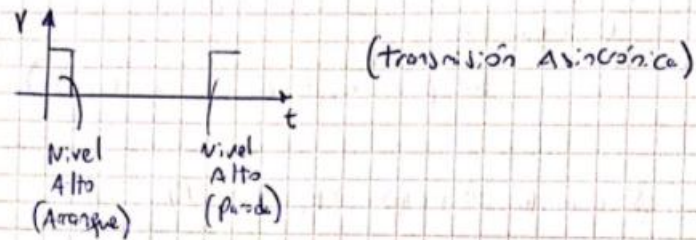 V
(transmisión Asincrónica)
t
Nivel Alto (Arranque)
Nivel Alto (Parada)